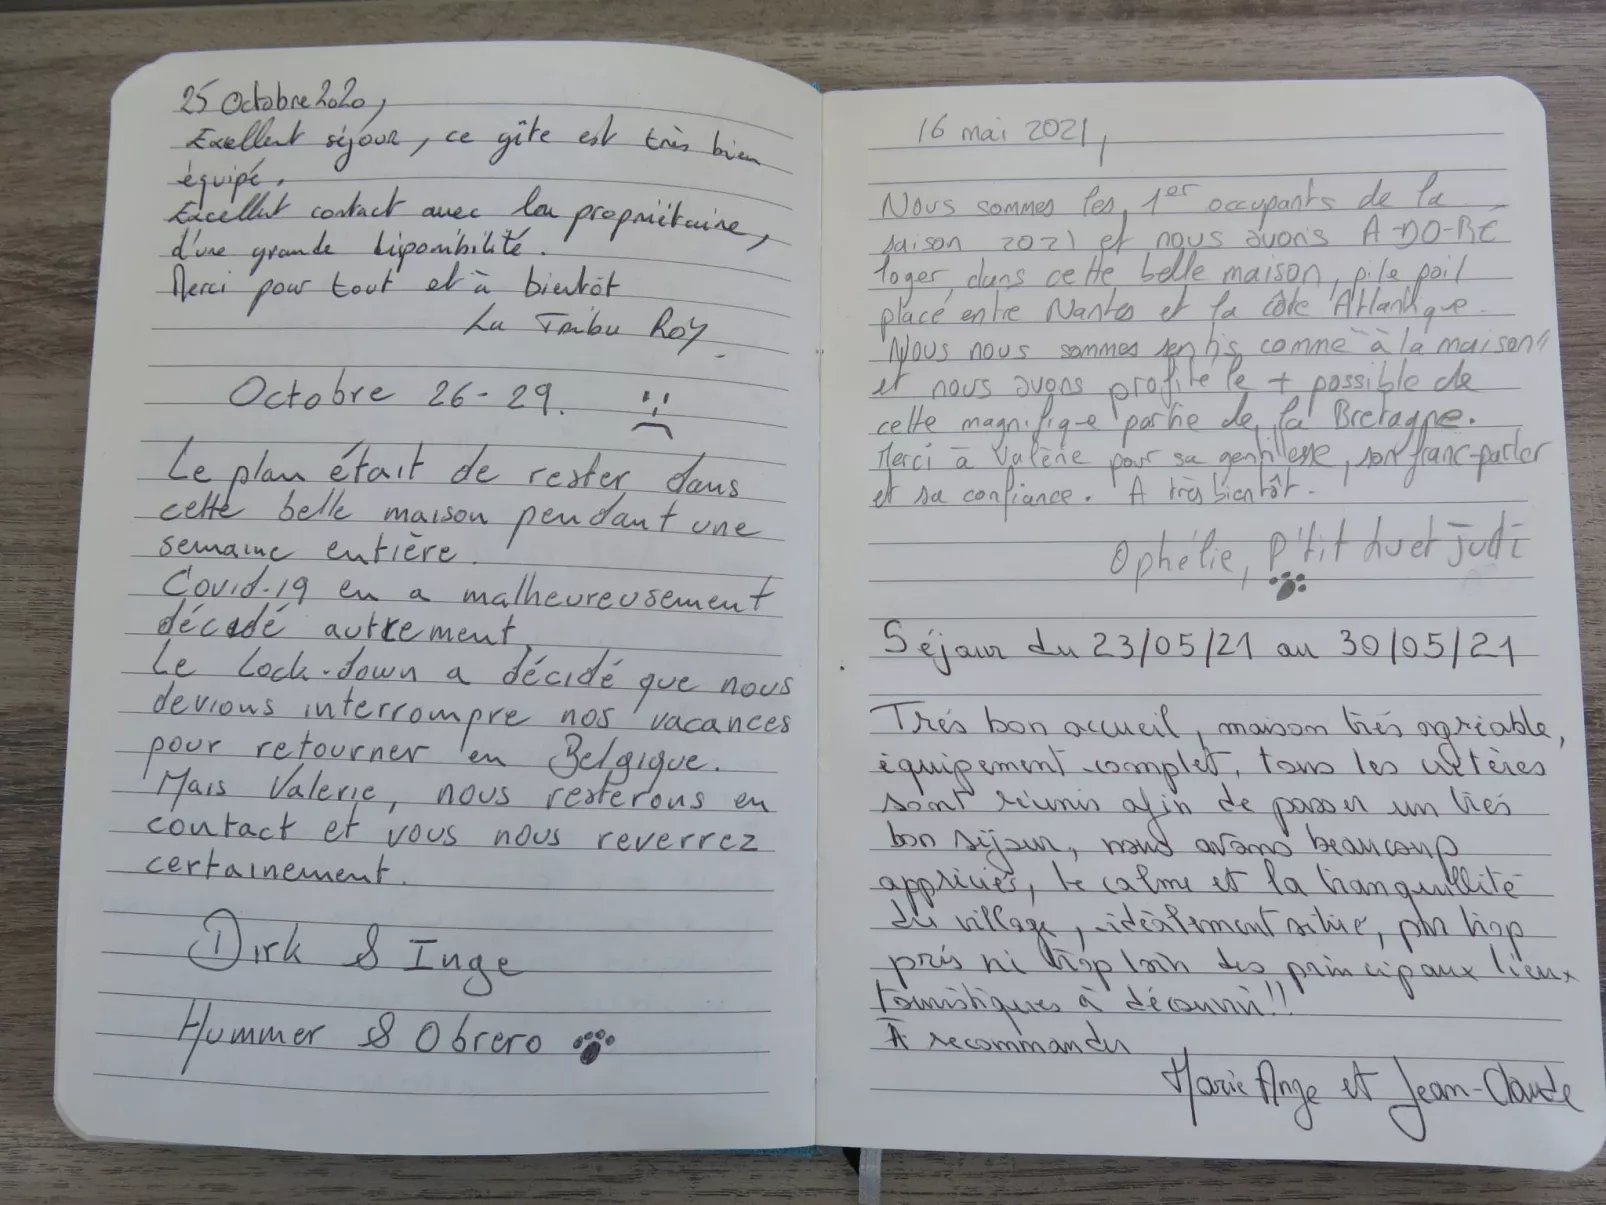 25 Octobre 2020,
Excellent séjour, ce gîte est très bien
équipé.
Excellent contact avec la propriétaire,
d'une grande diponibilité.
Merci pour tout et à bientôt
La Tribu Roy.
Octobre 26-29.
Le plan était de rester dans
cette belle maison pendant une
semaine entière.
Covid-19 en a malheureusement
décidé autrement.
Le Lock-down a décidé que nous
devions interrompre nos vacances
pour retourner en Belgique.
Mais Valerie, nous resterons en
contact et vous nous reverrez
certainement.
Dirk & Inge
Hummer & Obrero
16 mai 2021,
Nous sommes les 1er occupants de la
saison 2021 et nous avons A-DO-RÉ
loger dans cette belle maison, pile poil
placé entre Nantes et la côte Atlantique.
Nous nous sommes sentis comme "à la maison"
et nous avons profité le + possible de
cette magnifique partie de la Bretagne.
Merci à Valérie pour sa gentillesse, son franc-parler
et sa confiance. A très bientôt.
Ophélie, P'tit Lu et Judi
Séjour du 23/05/21 au 30/05/21
Très bon accueil, maison très agréable,
équipement complet, tous les critères
sont réunis afin de passer un très
bon séjour, nous avons beaucoup
appriciés, le calme et la tranquillité
du village, idéalement situé, pas trop
près ni trop loin des principaux lieux
touristiques à découvrir!!
A recommander
Marie Ange et Jean-Claude